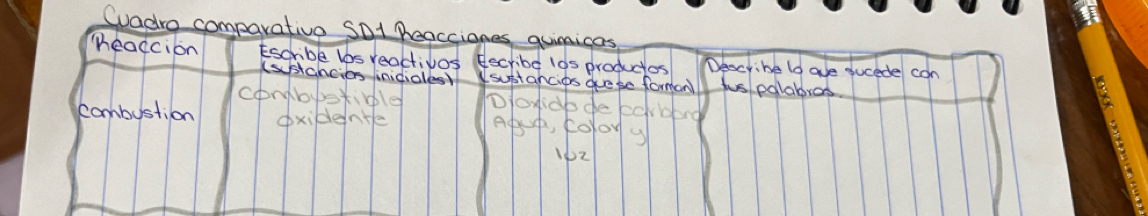 Cuadro comparativo SD1 Reacciones quimicas
Reacción
Escribe los reactivos
(sustancias iniciales)
Escribe los productos
(sustancias que se forman)
Describe lo que sucede con
tus palabras.
combustion
combustible
oxidente
Dioxido de carbono
Agua, Color y
luz